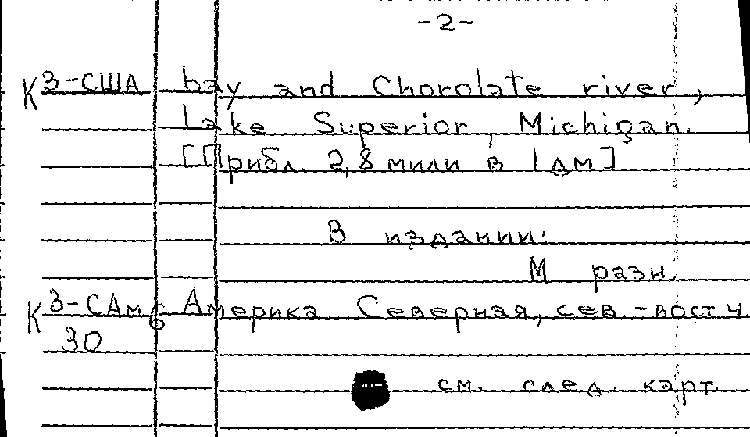 -2-
К3-США bay and Chorolate river,
Lake Superior, Michigan.
[Прибл. 2,8 мили в 1 дм]
В издании:
М разн.
К3-САм6 Америка Северная, сев.-вост ч
30
см. след. карт.